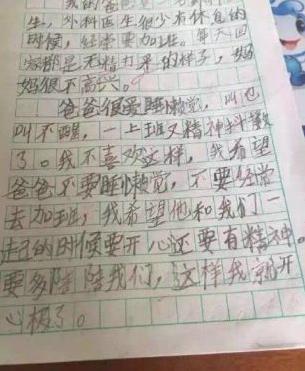 我的爸爸是一名外科医
生，外科医生很少有休息的
时候，经常要加班。每天回
家都是无精打采的样子，妈
妈很不高兴。
爸爸很爱睡懒觉，叫也
叫不醒，一上班又精神抖擞
了。我不喜欢这样，我希望
爸爸不要睡懒觉，不要经常
去加班，我希望他和我们一
起的时候要开心还要有精神。
要多陪陪我们，这样我就开
心极了。